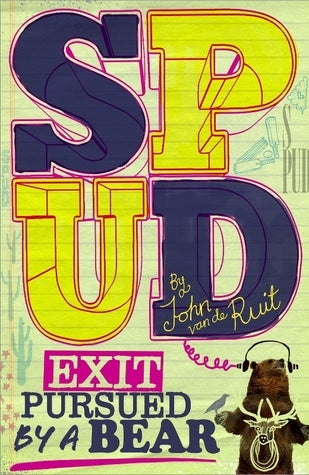 SP
UD
S
PUD
By
John
van de
Ruit
EXIT
PURSUED
BY A BEAR